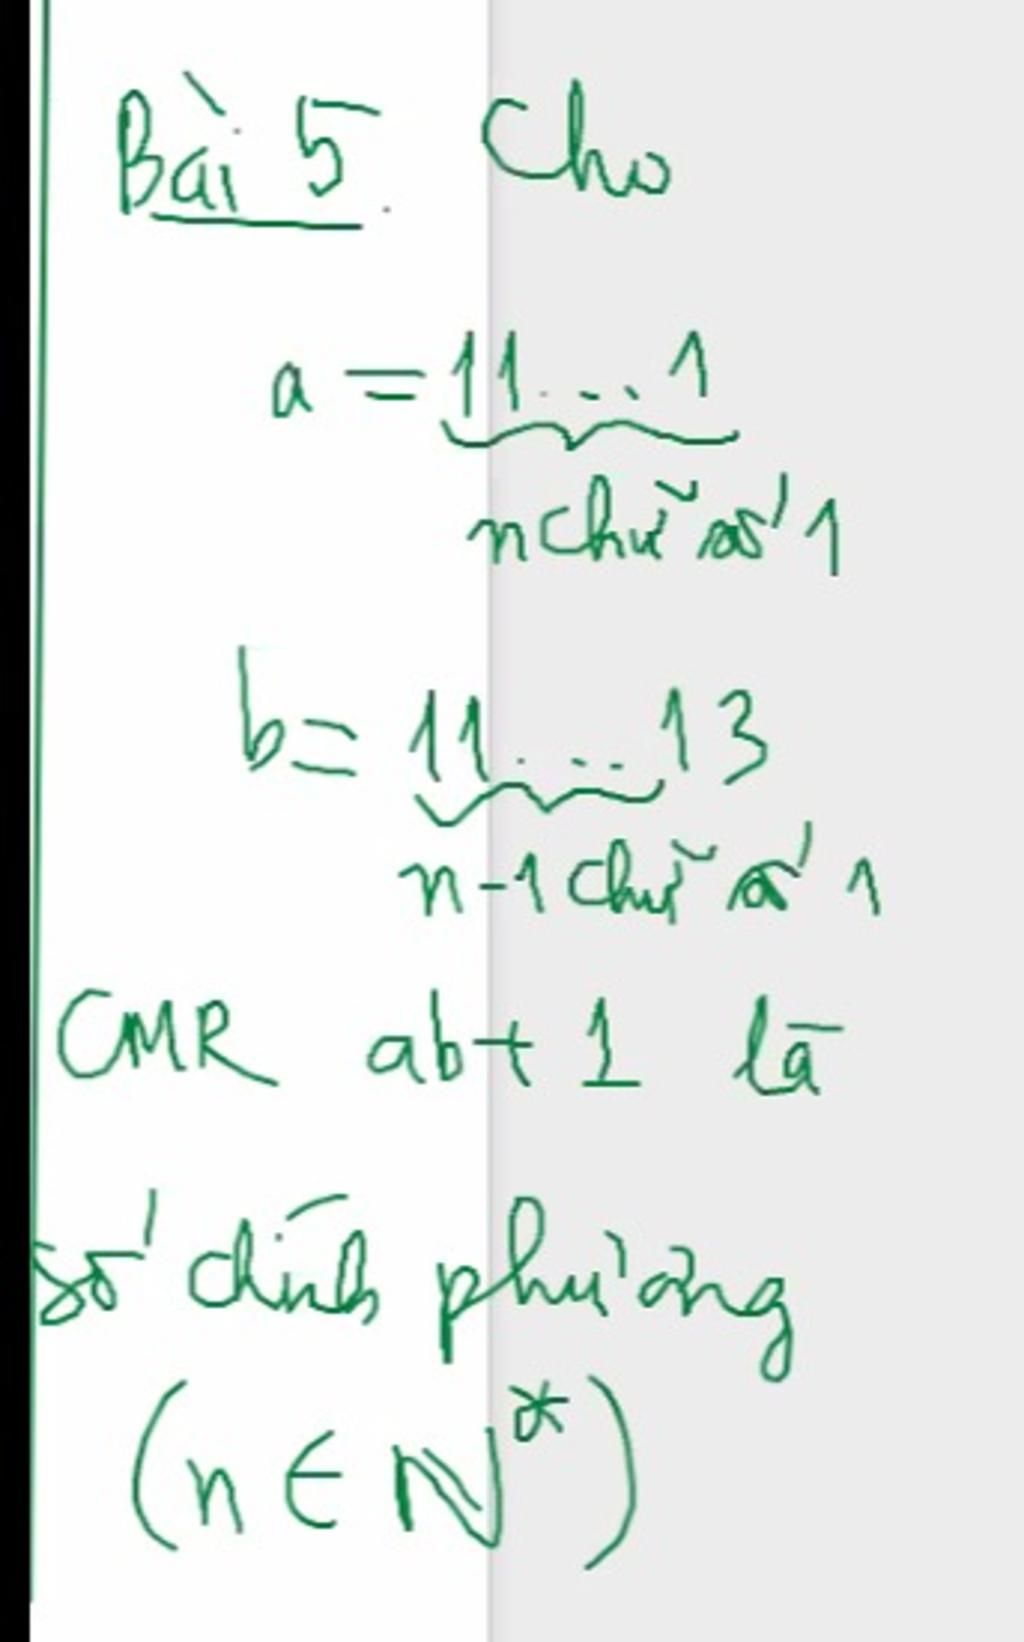 Bài 5. Cho
a = 11...1
n chữ số 1
b = 11...13
n-1 chữ số 1
CMR ab + 1 là
số chính phương
(n ∈ N*)